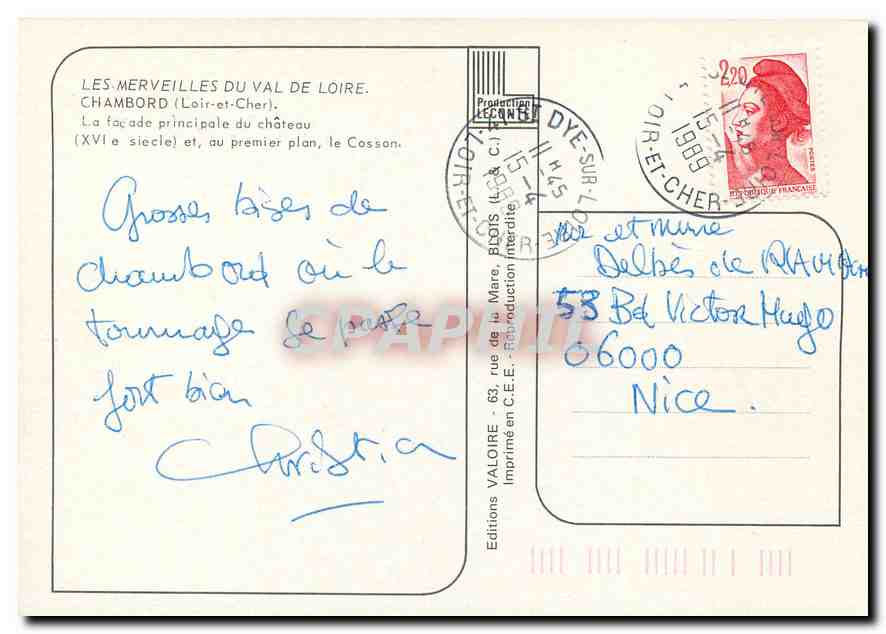 LES MERVEILLES DU VAL DE LOIRE.
CHAMBORD (Loir-et-Cher).
La façade principale du château
(XVI e siecle) et, au premier plan, le Cosson.
Grosses bises de
chambord où le
tournage se passe
fort bien
Christian
Production
LECONTE
Editions VALOIRE - 63, rue de la Mare, BLOIS (L. & C.)
Imprimé en C.E.E. - Reproduction interdite
41 ST DYE-SUR-LOIRE
11 H 45
15-4
1989
LOIR-ET-CHER
11 H 45
15-4
1989
LOIR-ET-CHER
2,20
POSTES
REPUBLIQUE FRANÇAISE
et mme
Delbès de
53 Bd Victor Hugo
06000
Nice.
CPAPHIL